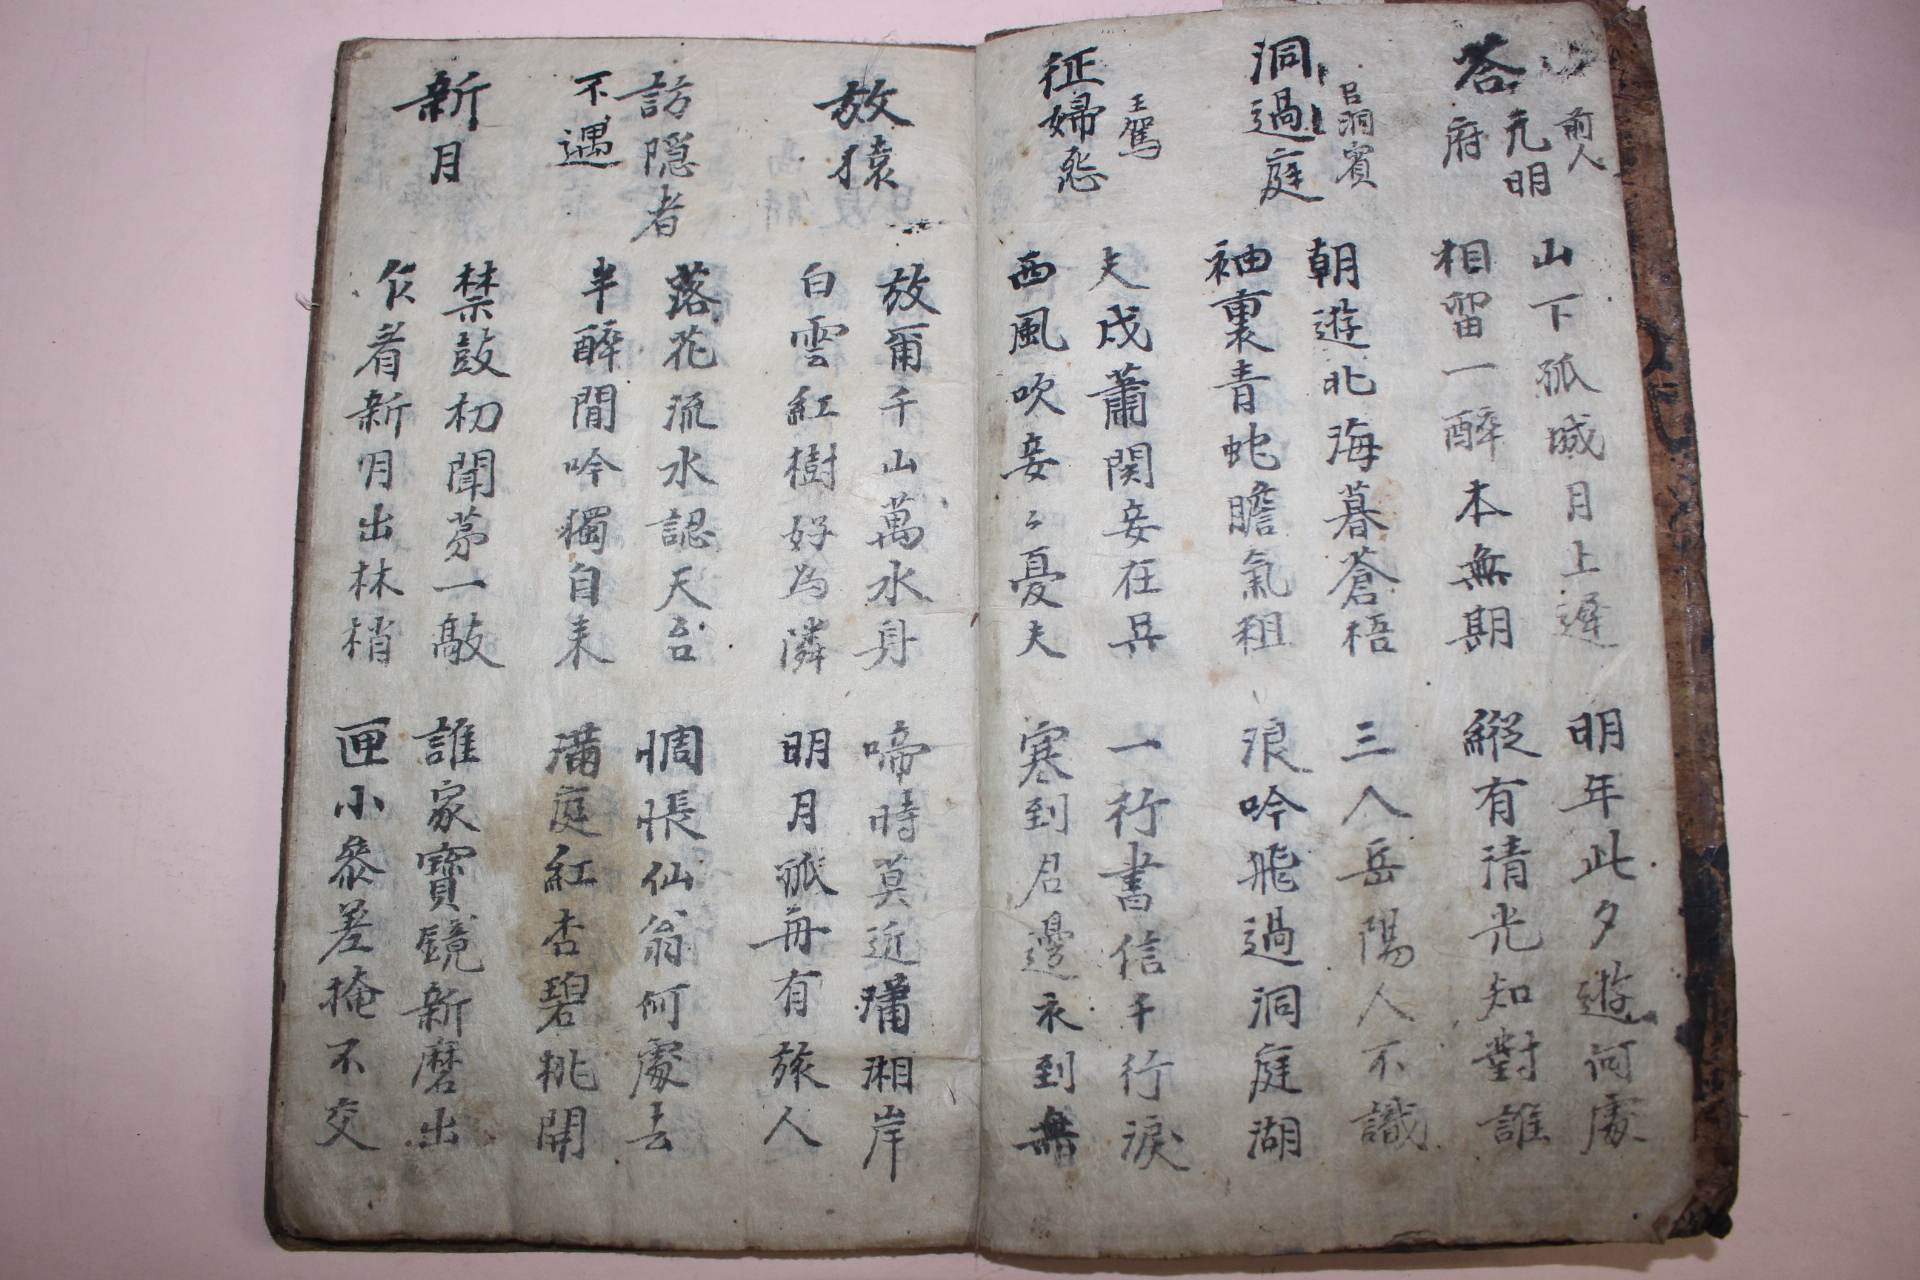 答
元明
府
前人
山下孤城月上遲
明年此夕遊何處
相留一醉本無期
縱有清光知對誰
洞過庭
呂洞賓
朝遊北海暮蒼梧
三入岳陽人不識
袖裏青蛇膽氣粗
浪吟飛過洞庭湖
征婦怨
王駕
夫戍蕭関妾在吳
一行書信千行淚
西風吹妾々憂夫
寒到君邊衣到無
放猿
放爾千山萬水身
啼時莫近瀟湘岸
白雲紅樹好為隣
明月孤舟有旅人
訪隠者
不遇
落花流水認天台
惆悵仙翁何處去
半醉閒吟獨自来
滿庭紅杏碧桃開
新月
禁鼓初聞第一敲
誰家寶鏡新磨出
乍看新月出林梢
匣小叅差掩不交